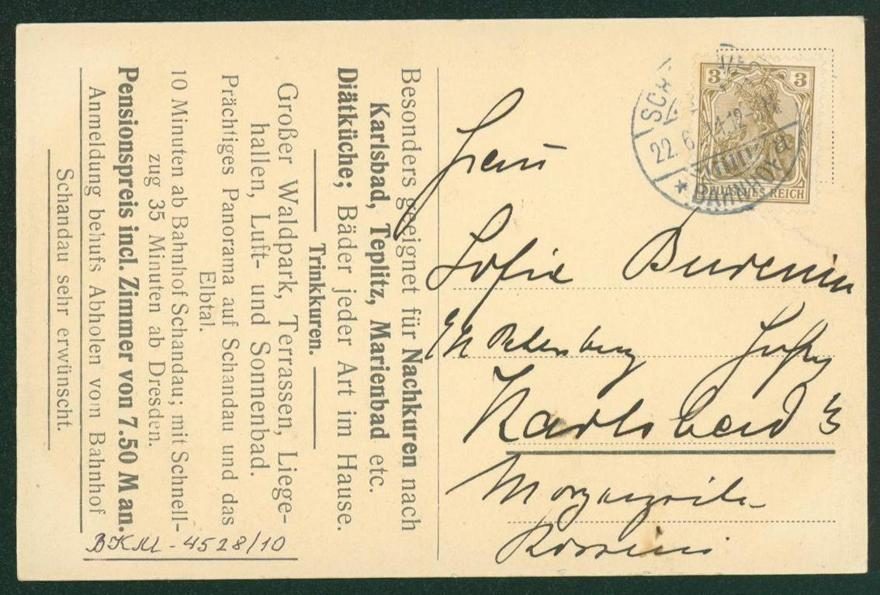 Besonders geeignet für Nachkuren nach
Karlsbad, Teplitz, Marienbad etc.
Diätküche; Bäder jeder Art im Hause.
Trinkkuren.
Großer Waldpark, Terrassen, Liege-
hallen, Luft- und Sonnenbad.
Prächtiges Panorama auf Schandau und das
Elbtal.
10 Minuten ab Bahnhof Schandau; mit Schnell-
zug 35 Minuten ab Dresden.
Pensionspreis incl. Zimmer von 7.50 M an.
Anmeldung behufs Abholen vom Bahnhof
Schandau sehr erwünscht.
BKM - 4528/10
3 3
DEUTSCHES REICH
22.6.
BAHNHOF
Frau
Sofie
Petersburg
Karlsbad